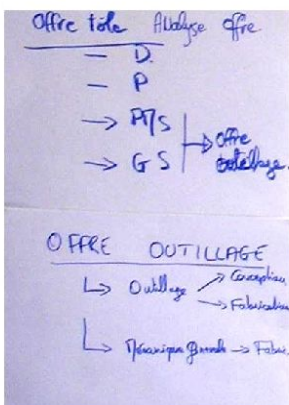 Offre tôle Analyse offre
— D.
— P
→ PT/S
→ G S → Offre outillage.
OFFRE OUTILLAGE
↳ Outillage → Conception
→ Fabrication
↳ Mécanique générale → Fabric.